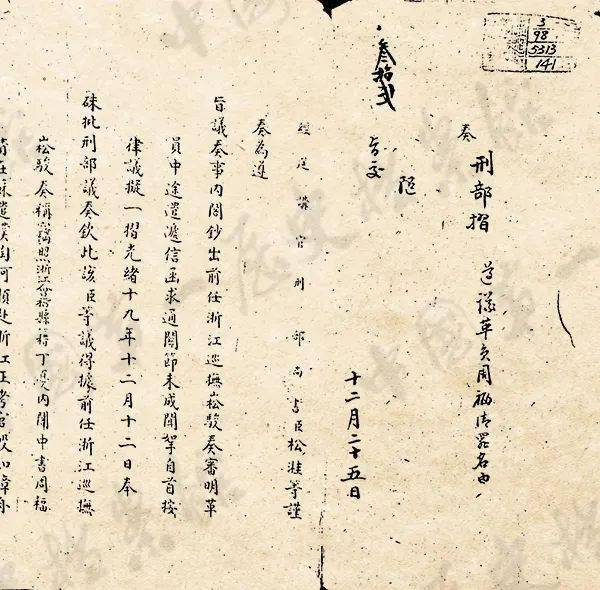 3
98
5313
141
奏
刑部摺 遵議革員周福清罪名由
隨
旨交
叁拾弍
十二月二十五日
經筵講官刑部尚書臣松溎等謹
奏為遵
旨議奏事內閣鈔出前任浙江巡撫崧駿奏審明革
員中途遣遞信函求通關節未成聞拏自首按
律議擬一摺光緒十九年十二月十二日奉
硃批刑部議奏欽此該臣等議得據前任浙江巡撫
崧駿奏稱竊照浙江會稽縣籍丁憂內閣中書周福
清在蘇遣僕陶阿順赴浙江正考官殷如璋舟